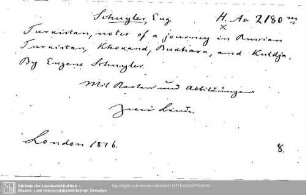 Schuyler, Eug.
H. As. 2180 m
Turkistan, notes of a journey in Russian
Turkistan, Khokand, Bukhara, and Kuldja.
By Eugene Schuyler.
Mit Karten und Abbildungen
Zwei Bände.
London 1876.
8.